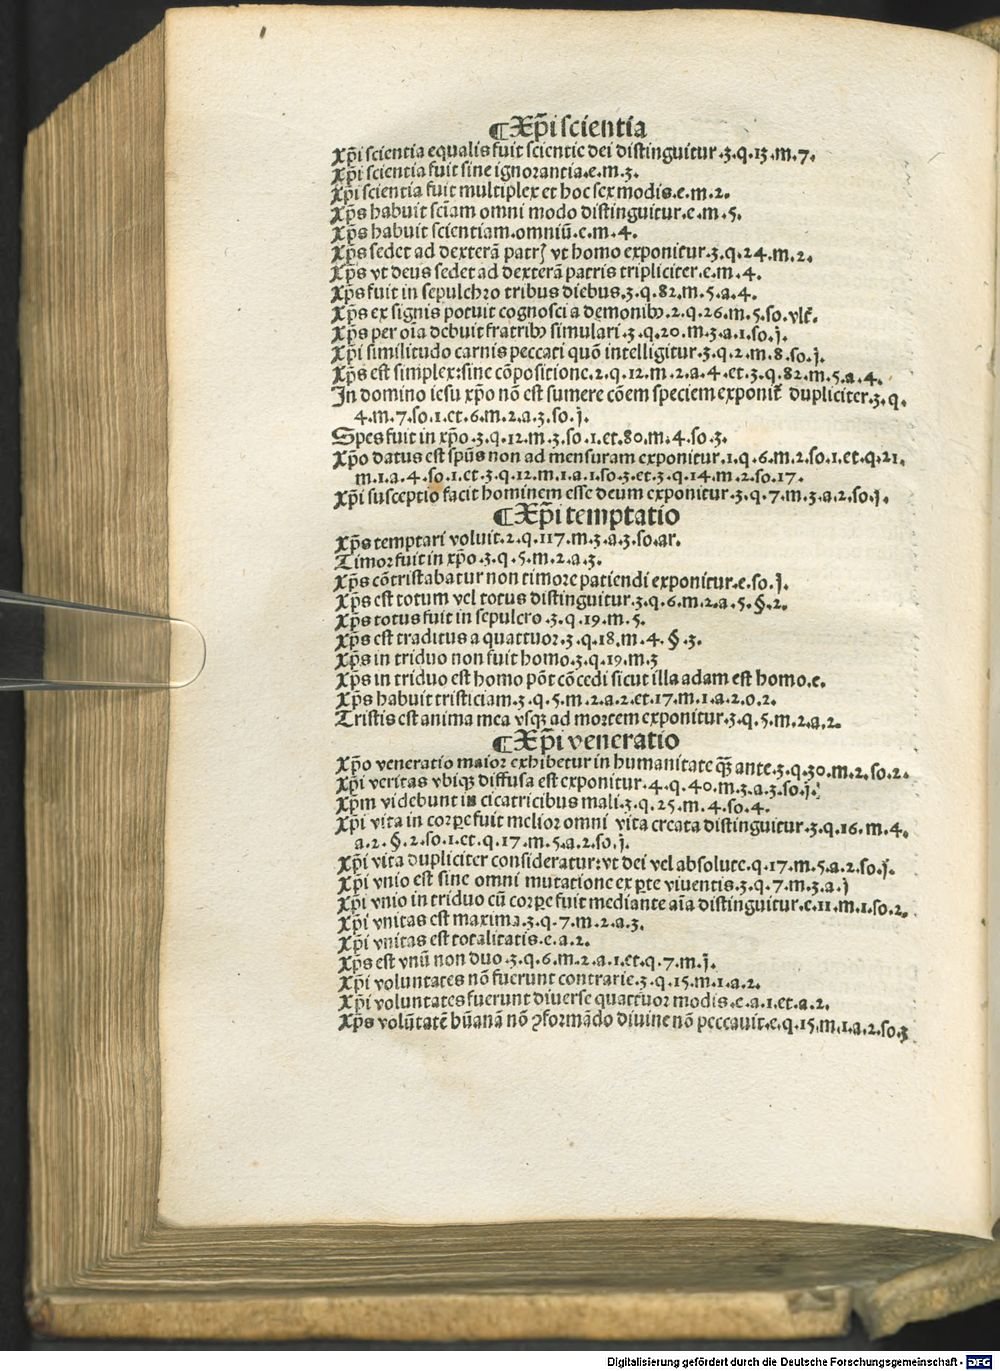 ¶Xp̄i scientia
Xp̄i scientia equalis fuit scientie dei distinguitur.3.q.13.m.7.
Xp̄i scientia fuit sine ignorantia.e.m.3.
Xp̄i scientia fuit multiplex et hoc sex modis.e.m.2.
Xp̄s habuit sciam omni modo distinguitur.e.m.5.
Xp̄s habuit scientiam.omniū.e.m.4.
Xp̄s sedet ad dexterā patrꝭ vt homo exponitur.3.q.24.m.2.
Xp̄s vt deus sedet ad dexterā patris tripliciter.e.m.4.
Xp̄s fuit in sepulchro tribus diebus.3.q.82.m.5.a.4.
Xp̄s ex signis potuit cognosci a demonibꝰ.2.q.26.m.5.so.vlt̄.
Xp̄s per oīa debuit fratribꝰ simulari.3.q.20.m.3.a.1.so.j.
Xp̄i similitudo carnis peccati quō intelligitur.3.q.2.m.8.so.j.
Xp̄s est simplex:sine cōpositione.2.q.12.m.2.a.4.et.3.q.82.m.5.a.4.
In domino iesu xp̄o nō est sumere cōem speciem exponit̄ dupliciter.3.q.
4.m.7.so.1.et.6.m.2.a.3.so.j.
Spes fuit in xp̄o.3.q.12.m.3.so.1.et.80.m.4.so.3.
Xp̄o datus est spūs non ad mensuram exponitur.1.q.6.m.2.so.1.et.q.21.
m.1.a.4.so.1.et.3.q.12.m.1.a.1.so.3.et.3.q.14.m.2.so.17.
Xp̄i susceptio facit hominem esse deum exponitur.3.q.7.m.3.a.2.so.j.
¶Xp̄i temptatio
Xp̄s temptari voluit.2.q.117.m.3.a.3.so.ar.
Timor fuit in xp̄o.3.q.5.m.2.a.3.
Xp̄s cōtristabatur non timore patiendi exponitur.e.so.j.
Xp̄s est totum vel totus distinguitur.3.q.6.m.2.a.5.§.2.
Xp̄s totus fuit in sepulcro.3.q.19.m.5.
Xp̄s est traditus a quattuor.3.q.18.m.4.§.3.
Xp̄s in triduo non fuit homo.3.q.19.m.3
Xp̄s in triduo est homo pōt cōcedi sicut illa adam est homo.e.
Xp̄s habuit tristiciam.3.q.5.m.2.a.2.et.17.m.1.a.2.o.2.
Tristis est anima mea vsqꝫ ad mortem exponitur.3.q.5.m.2.a.2.
¶Xp̄i veneratio
Xp̄o veneratio maior exhibetur in humanitate qꝫ̄ ante.3.q.30.m.2.so.2.
Xp̄i veritas vbiqꝫ diffusa est exponitur.4.q.40.m.3.a.3.so.j.
Xp̄m videbunt in cicatricibus mali.3.q.25.m.4.so.4.
Xp̄i vita in corꝑe fuit melior omni vita creata distinguitur.3.q.16.m.4.
a.2.§.2.so.1.et.q.17.m.5.a.2.so.j.
Xp̄i vita dupliciter consideratur:vt dei vel absolute.q.17.m.5.a.2.so.j.
Xp̄i vnio est sine omni mutatione ex ꝑte viuentis.3.q.7.m.3.a.j
Xp̄i vnio in triduo cū corꝑe fuit mediante aīa distinguitur.e.11.m.1.so.2.
Xp̄i vnitas est maxima.3.q.7.m.2.a.3.
Xp̄i vnitas est totalitatis.e.a.2.
Xp̄s est vnū non duo.3.q.6.m.2.a.1.et.q.7.m.j.
Xp̄i voluntates nō fuerunt contrarie.3.q.15.m.1.a.2.
Xp̄i voluntates fuerunt diuerse quattuor modis.e.a.1.et.a.2.
Xp̄s volūtatē hūanā nō ꝯformādo diuine nō peccauit.e.q.15.m.1.a.2.so.3
Digitalisierung gefördert durch die Deutsche Forschungsgemeinschaft - DFG